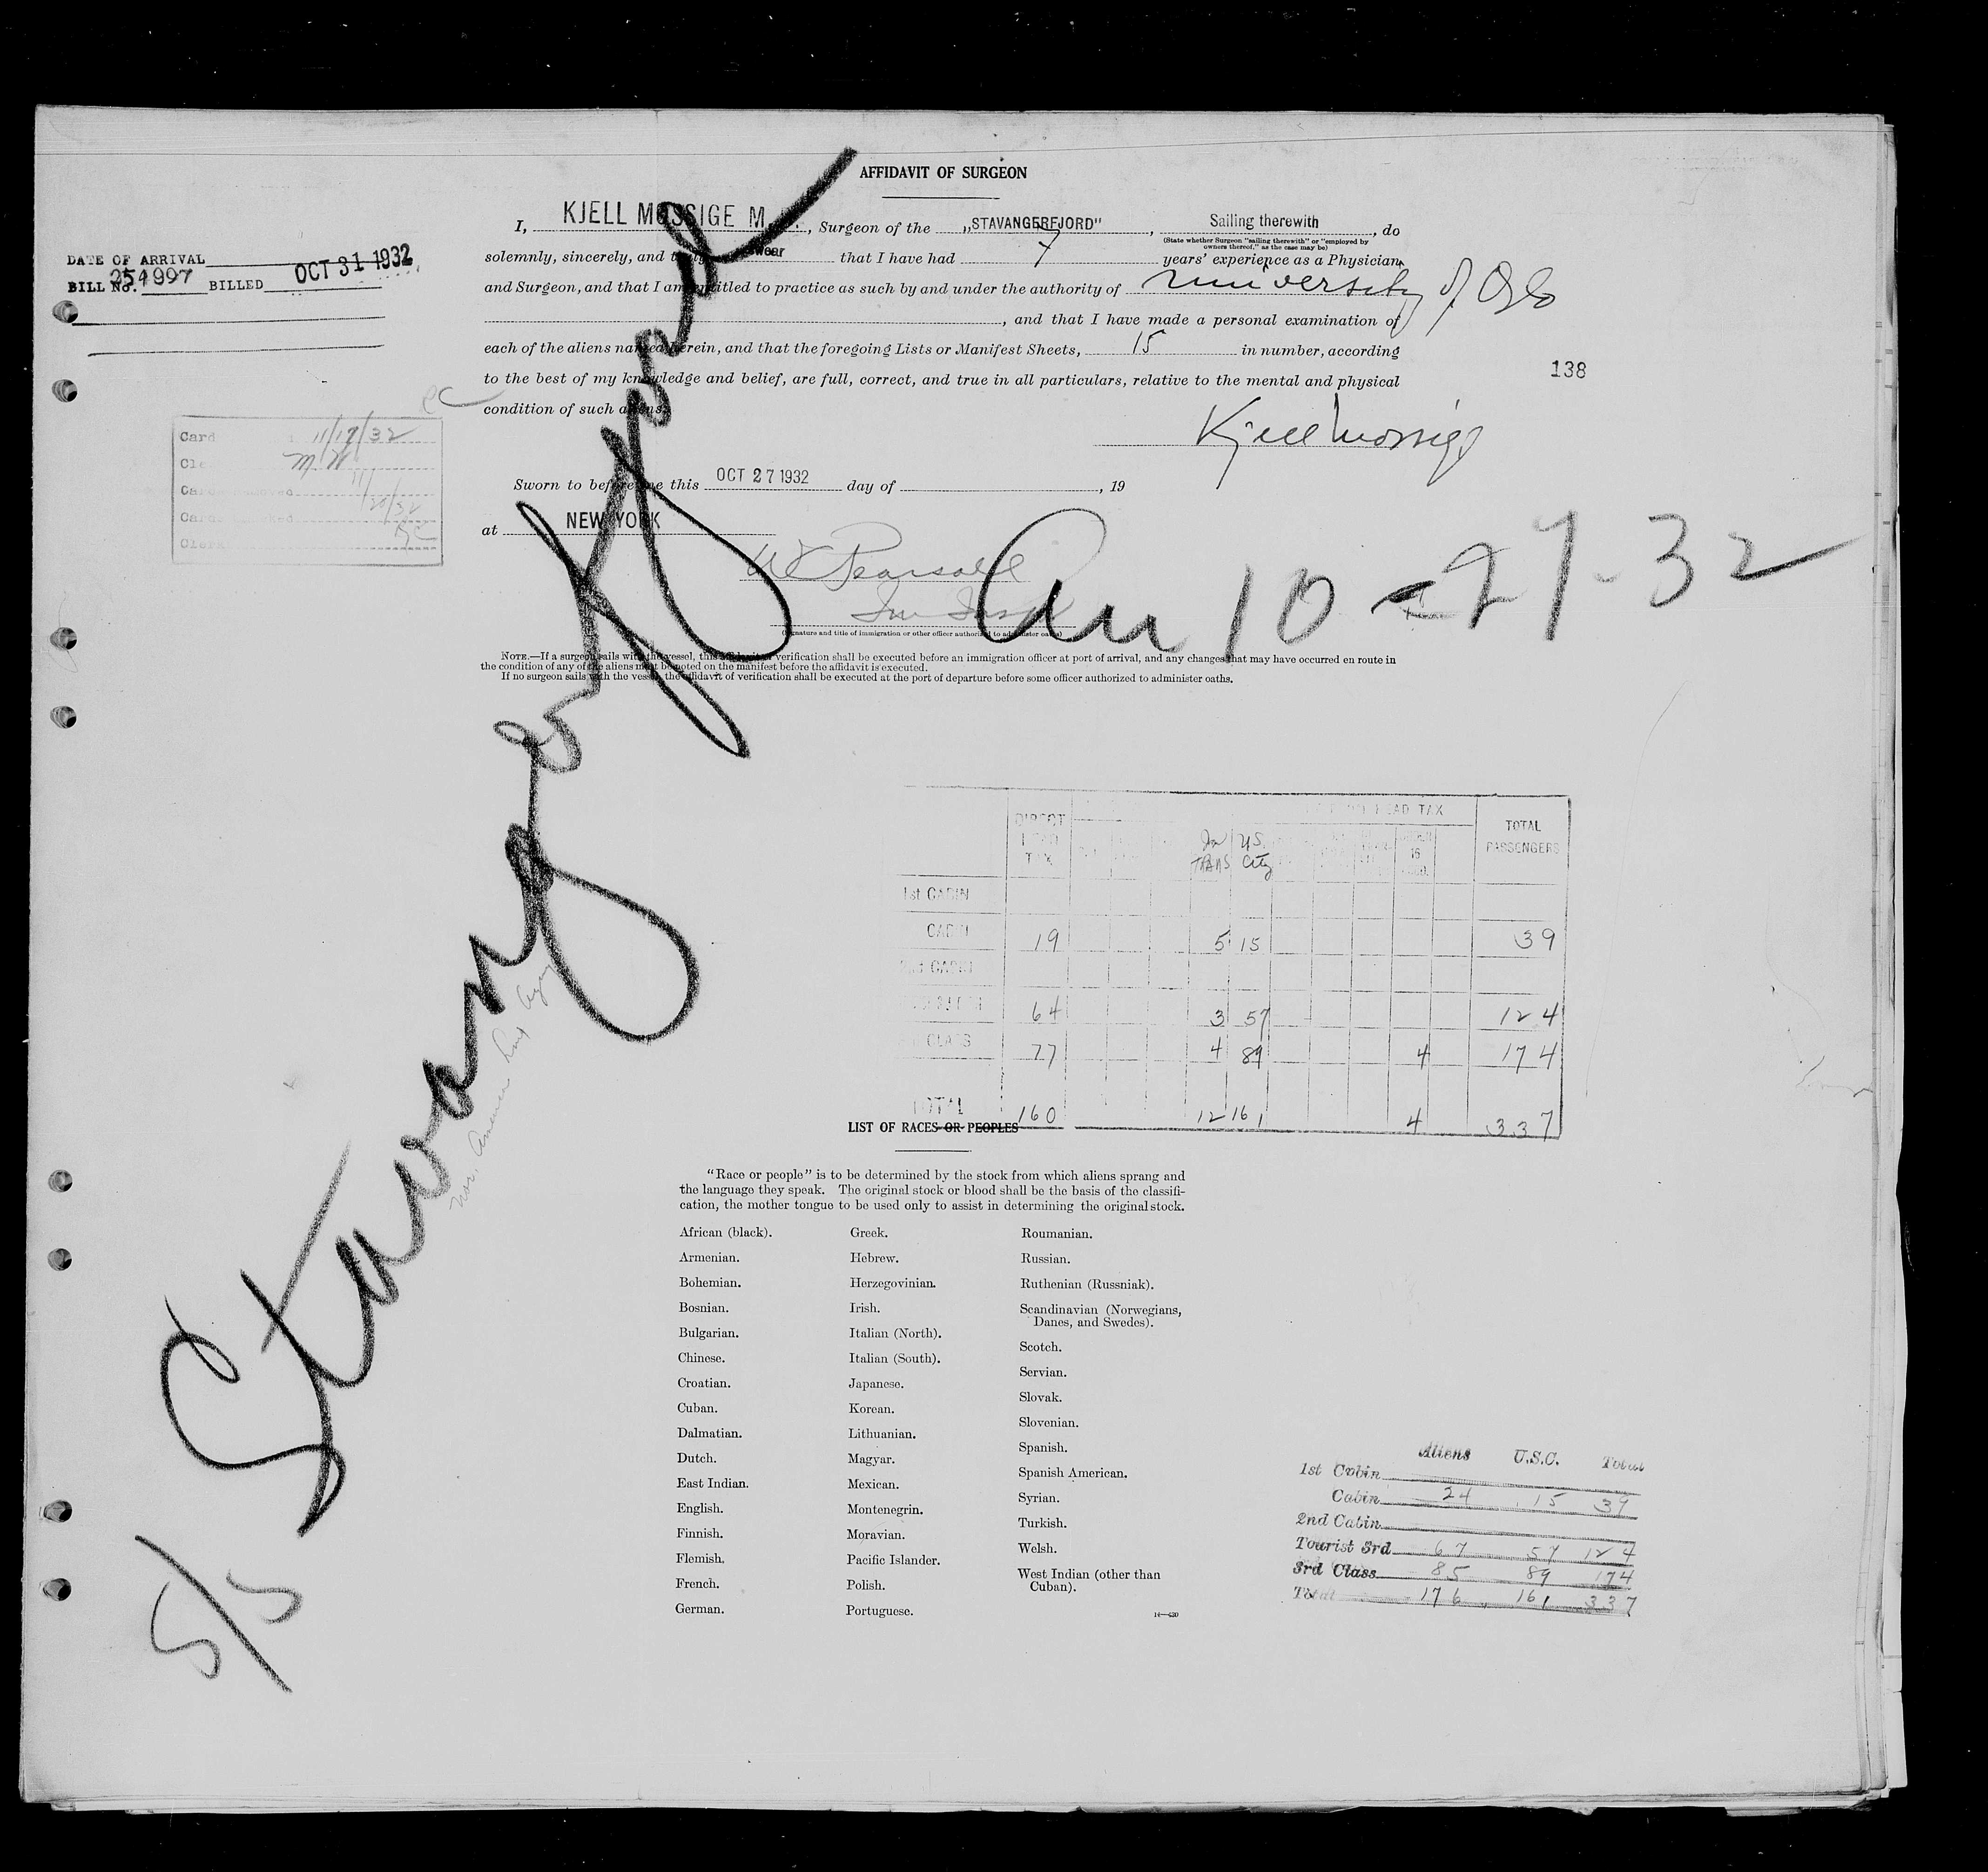 AFFIDAVIT OF SURGEON
I, KJELL MOSSIGE M. , Surgeon of the „STAVANGERFJORD" , Sailing therewith , do
(State whether Surgeon "sailing therewith" or "employed by owners thereof," as the case may be)
solemnly, sincerely, and swear that I have had 7 years' experience as a Physician
and Surgeon, and that I am entitled to practice as such by and under the authority of university of Oslo
, and that I have made a personal examination of
each of the aliens named herein, and that the foregoing Lists or Manifest Sheets, 15 in number, according
to the best of my knowledge and belief, are full, correct, and true in all particulars, relative to the mental and physical
condition of such aliens.
Kjell Mossige
Sworn to before me this OCT 27 1932 day of , 19
at NEW YORK
W Pearsall
(Signature and title of immigration or other officer authorized to administer oaths)
NOTE.—If a surgeon sails with the vessel, this affidavit verification shall be executed before an immigration officer at port of arrival, and any changes that may have occurred en route in
the condition of any of the aliens must be noted on the manifest before the affidavit is executed.
If no surgeon sails with the vessel, the affidavit of verification shall be executed at the port of departure before some officer authorized to administer oaths.
DATE OF ARRIVAL
BILL No. 251997 BILLED OCT 31 1932
138
Card 11/17/32
Cle
Card
11/20/32
Card
Clerk
Stavangerfjord
Arr 10-27-32
5/5
DIRECT HEAD TAX In TRANS U.S. City HEAD TAX 16 TOTAL PASSENGERS
1st CABIN
CABIN 19 5 15 39
2nd CABIN
64 3 57 124
CLASS 77 4 89 4 174
TOTAL 160 12 161 4 337
LIST OF RACES OR PEOPLES
"Race or people" is to be determined by the stock from which aliens sprang and
the language they speak. The original stock or blood shall be the basis of the classifi-
cation, the mother tongue to be used only to assist in determining the original stock.
African (black).
Armenian.
Bohemian.
Bosnian.
Bulgarian.
Chinese.
Croatian.
Cuban.
Dalmatian.
Dutch.
East Indian.
English.
Finnish.
Flemish.
French.
German.
Greek.
Hebrew.
Herzegovinian.
Irish.
Italian (North).
Italian (South).
Japanese.
Korean.
Lithuanian.
Magyar.
Mexican.
Montenegrin.
Moravian.
Pacific Islander.
Polish.
Portuguese.
Roumanian.
Russian.
Ruthenian (Russniak).
Scandinavian (Norwegians,
Danes, and Swedes).
Scotch.
Servian.
Slovak.
Slovenian.
Spanish.
Spanish American.
Syrian.
Turkish.
Welsh.
West Indian (other than
Cuban).
14—430
Aliens U.S.C. Total
1st Cabin
Cabin 24 15 39
2nd Cabin
Tourist 3rd 67 57 124
3rd Class 85 89 174
Total 176 161 337